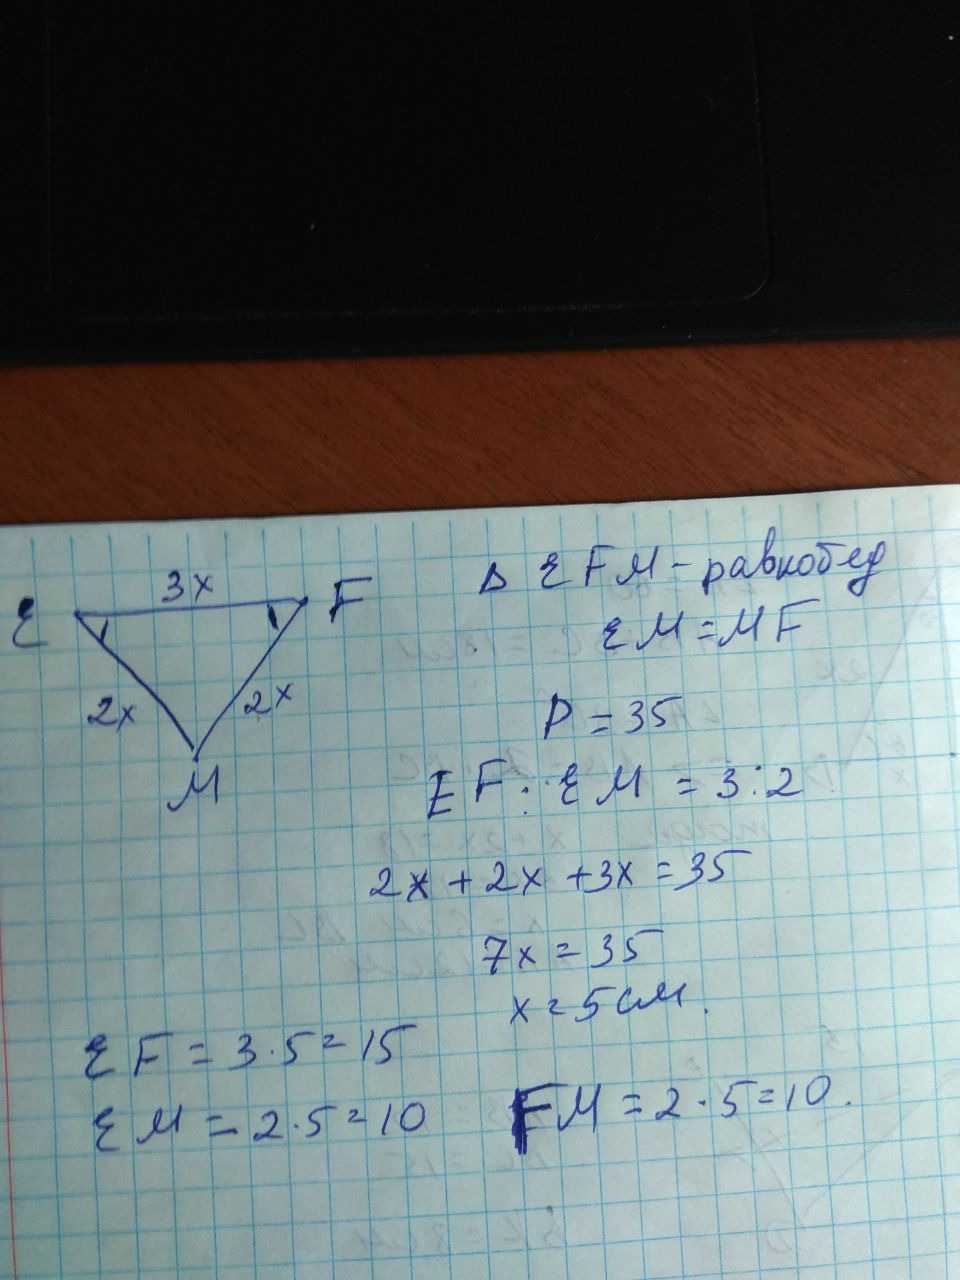 3x
E F
2x 2x
M
Δ EFM - равнобед
EM = MF
P = 35
EF : EM = 3 : 2
2x + 2x + 3x = 35
7x = 35
x = 5 см.
EF = 3·5 = 15
EM = 2·5 = 10
FM = 2·5 = 10.